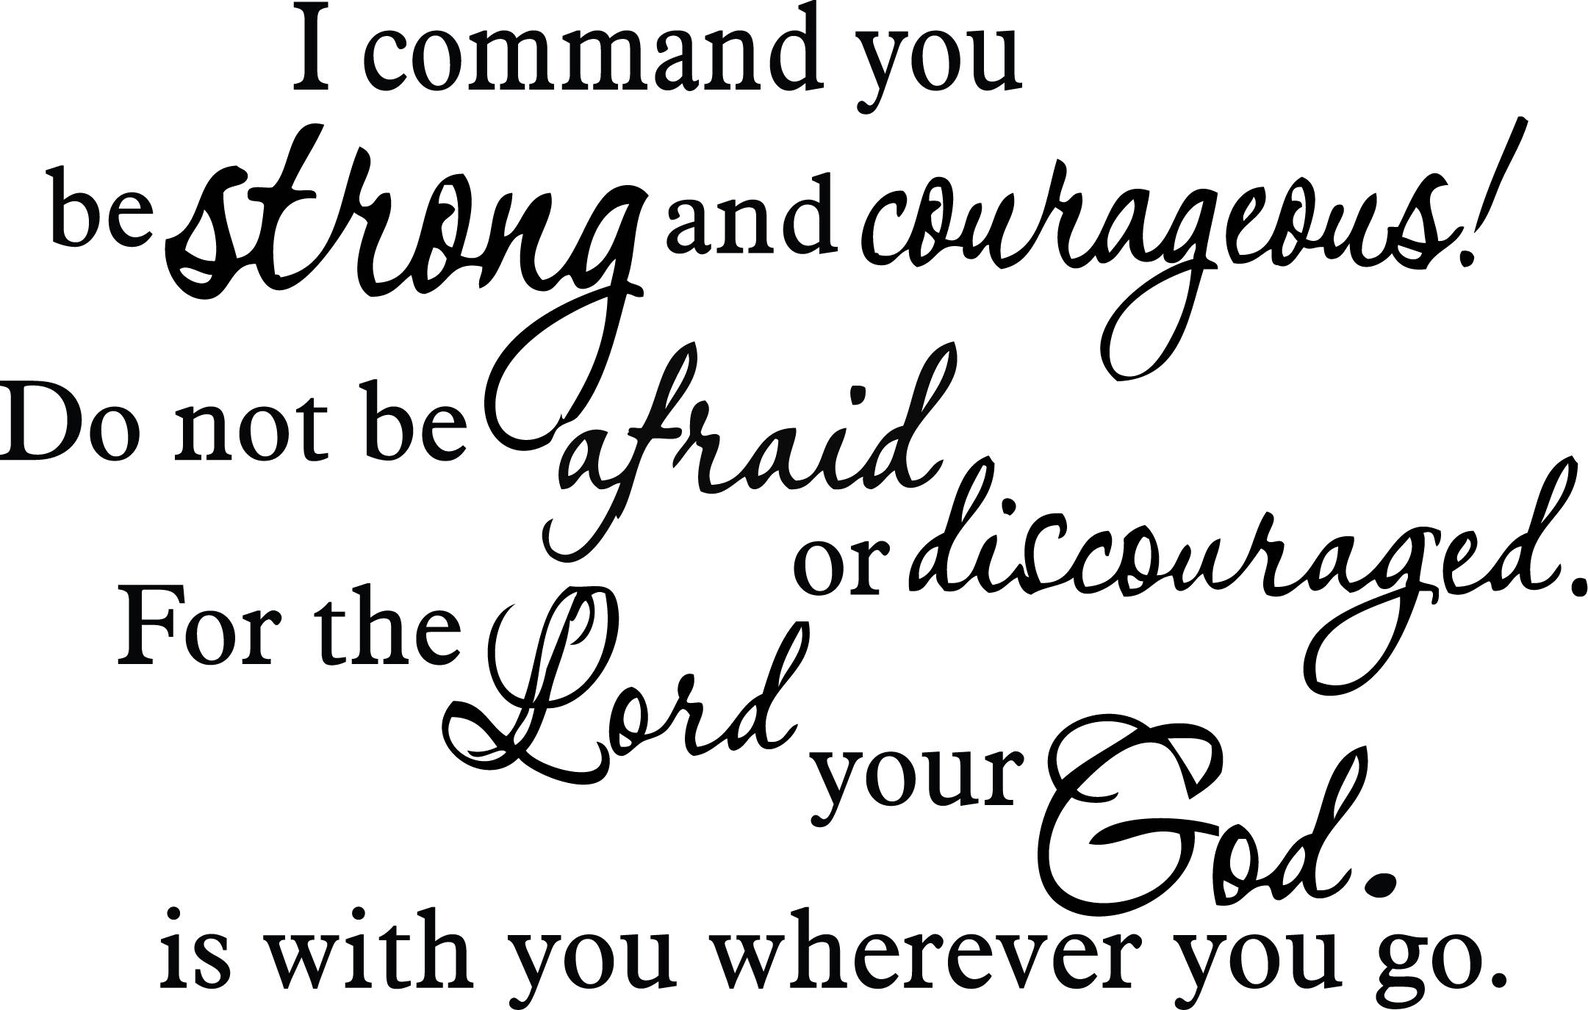 I command you
be strong and courageous!
Do not be afraid
or discouraged.
For the Lord
your God.
is with you wherever you go.